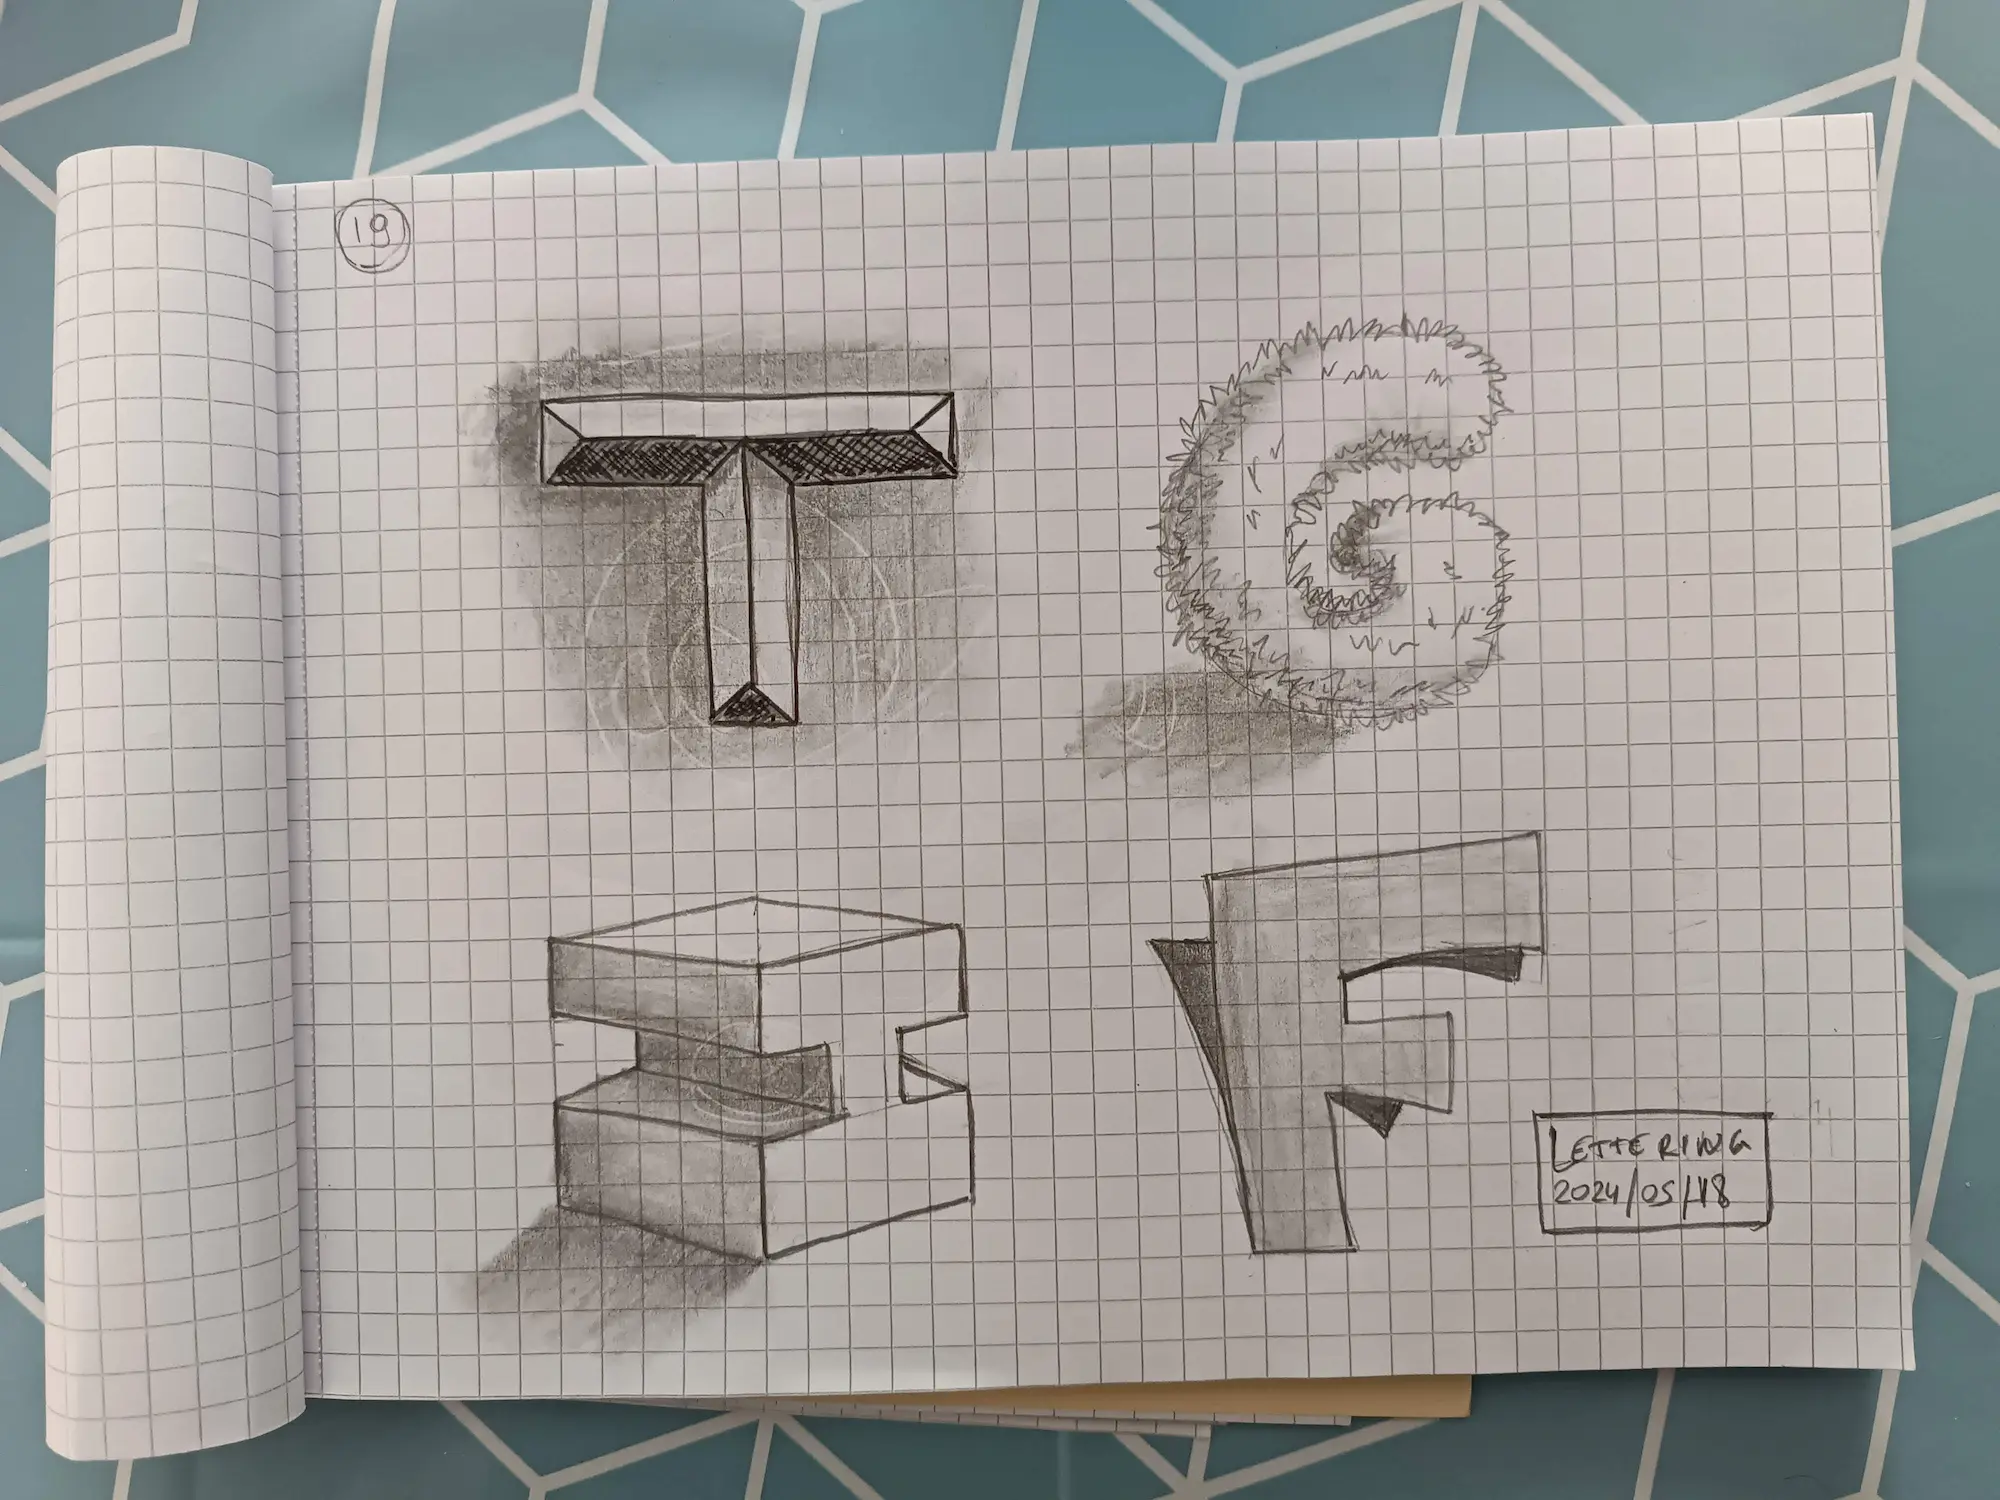 18
T G
I F
LETTERING
2024/05/18